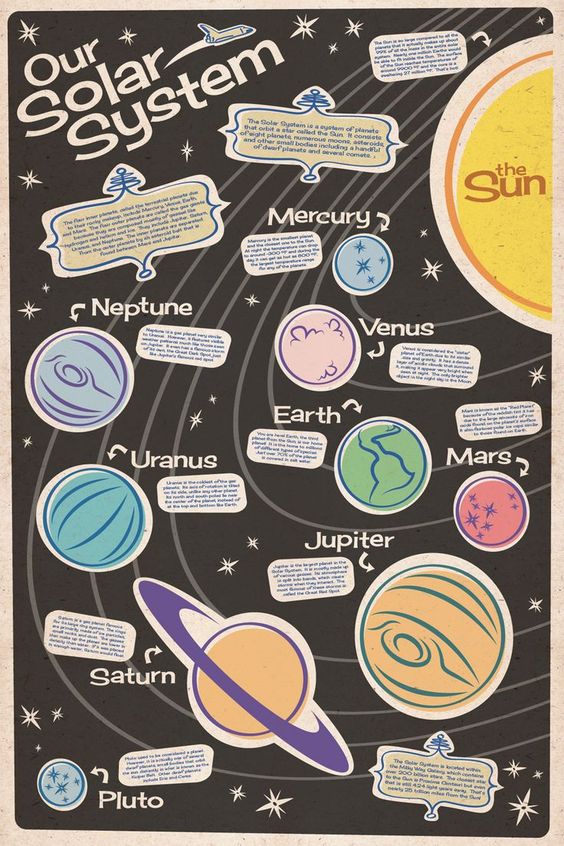 Our
Solar
System
The Sun is so large compared to all the
planets that it actually makes up about
99% of all the mass in the entire solar
system. Nearly one million Earths would
be able to fit inside the Sun. The surface
of the Sun reaches temperatures of
around 9900 °F and the core is a
sweltering 27 million °F. That's hot!
the
Sun
The Solar System is a system of planets
that orbit a star called the Sun. It consists
of eight planets, numerous moons, asteroids,
and other small bodies including a handful
of dwarf planets and several comets.
The four inner planets, called the terrestrial planets due
to their rocky makeup, include Mercury, Venus, Earth,
and Mars. The four outer planets are called the gas giants
because they are composed mostly of gasses like
hydrogen and helium and ice. They include Jupiter, Saturn,
Uranus, and Neptune. The inner planets are separated
from the outer planets by an asteroid belt that is
found between Mars and Jupiter.
Mercury
Mercury is the smallest planet
and the closest one to the Sun.
At night the temperature can drop
to around -300 °F and during the
day it can get as hot as 800 °F,
the largest temperature range
for any of the planets.
Neptune
Neptune is a gas planet very similar
to Uranus. However, it features visible
weather patterns much like those seen
on Jupiter. It even has a famous storm
of its own, the Great Dark Spot, just
like Jupiter's famous red spot.
Venus
Venus is considered the "sister"
planet of Earth due to its similar
size and gravity. It has a dense
layer of acidic clouds that surround
it, making it appear very bright when
seen at night. The only brighter
object in the night sky is the Moon.
Earth
You are here! Earth, the third
planet from the Sun, is our home
planet. It is the home to millions
of different types of species.
Just over 70% of the planet
is covered in salt water.
Mars is known as the "Red Planet"
because of the reddish tint it has
due to the large amounts of iron
oxide found on the planet's surface.
It also features polar ice caps similar
to those found on Earth.
Mars
Uranus
Uranus is the coldest of the gas
planets. Its axis of rotation is tilted
on its side, unlike any other planet.
Its north and south poles lie near
the center of the planet, instead of
at the top and bottom like Earth.
Jupiter
Jupiter is the largest planet in the
Solar System. It is mostly made up
of various gasses. Its atmosphere
is split into bands, which create
storms when they interact. The
most famous of these storms is
called the Great Red Spot.
Saturn is a gas planet famous
for its large ring system. The rings
are primarily made of ice particles,
small rocks and dust. The gasses
that make up the planet are lower in
density than water. If it was placed
in enough water, Saturn would float.
Saturn
Pluto used to be considered a planet.
However, it is actually one of several
dwarf planets, small bodies that orbit
the sun distantly in what is known as the
Kuiper Belt. Other dwarf planets
include Eris and Ceres.
Pluto
The Solar System is located within
the Milky Way Galaxy, which contains
over 200 billion stars. The closest star
to the Sun is Proxima Centauri but even
that is still 4.24 light years away. That's
nearly 25 trillion miles from the Sun!